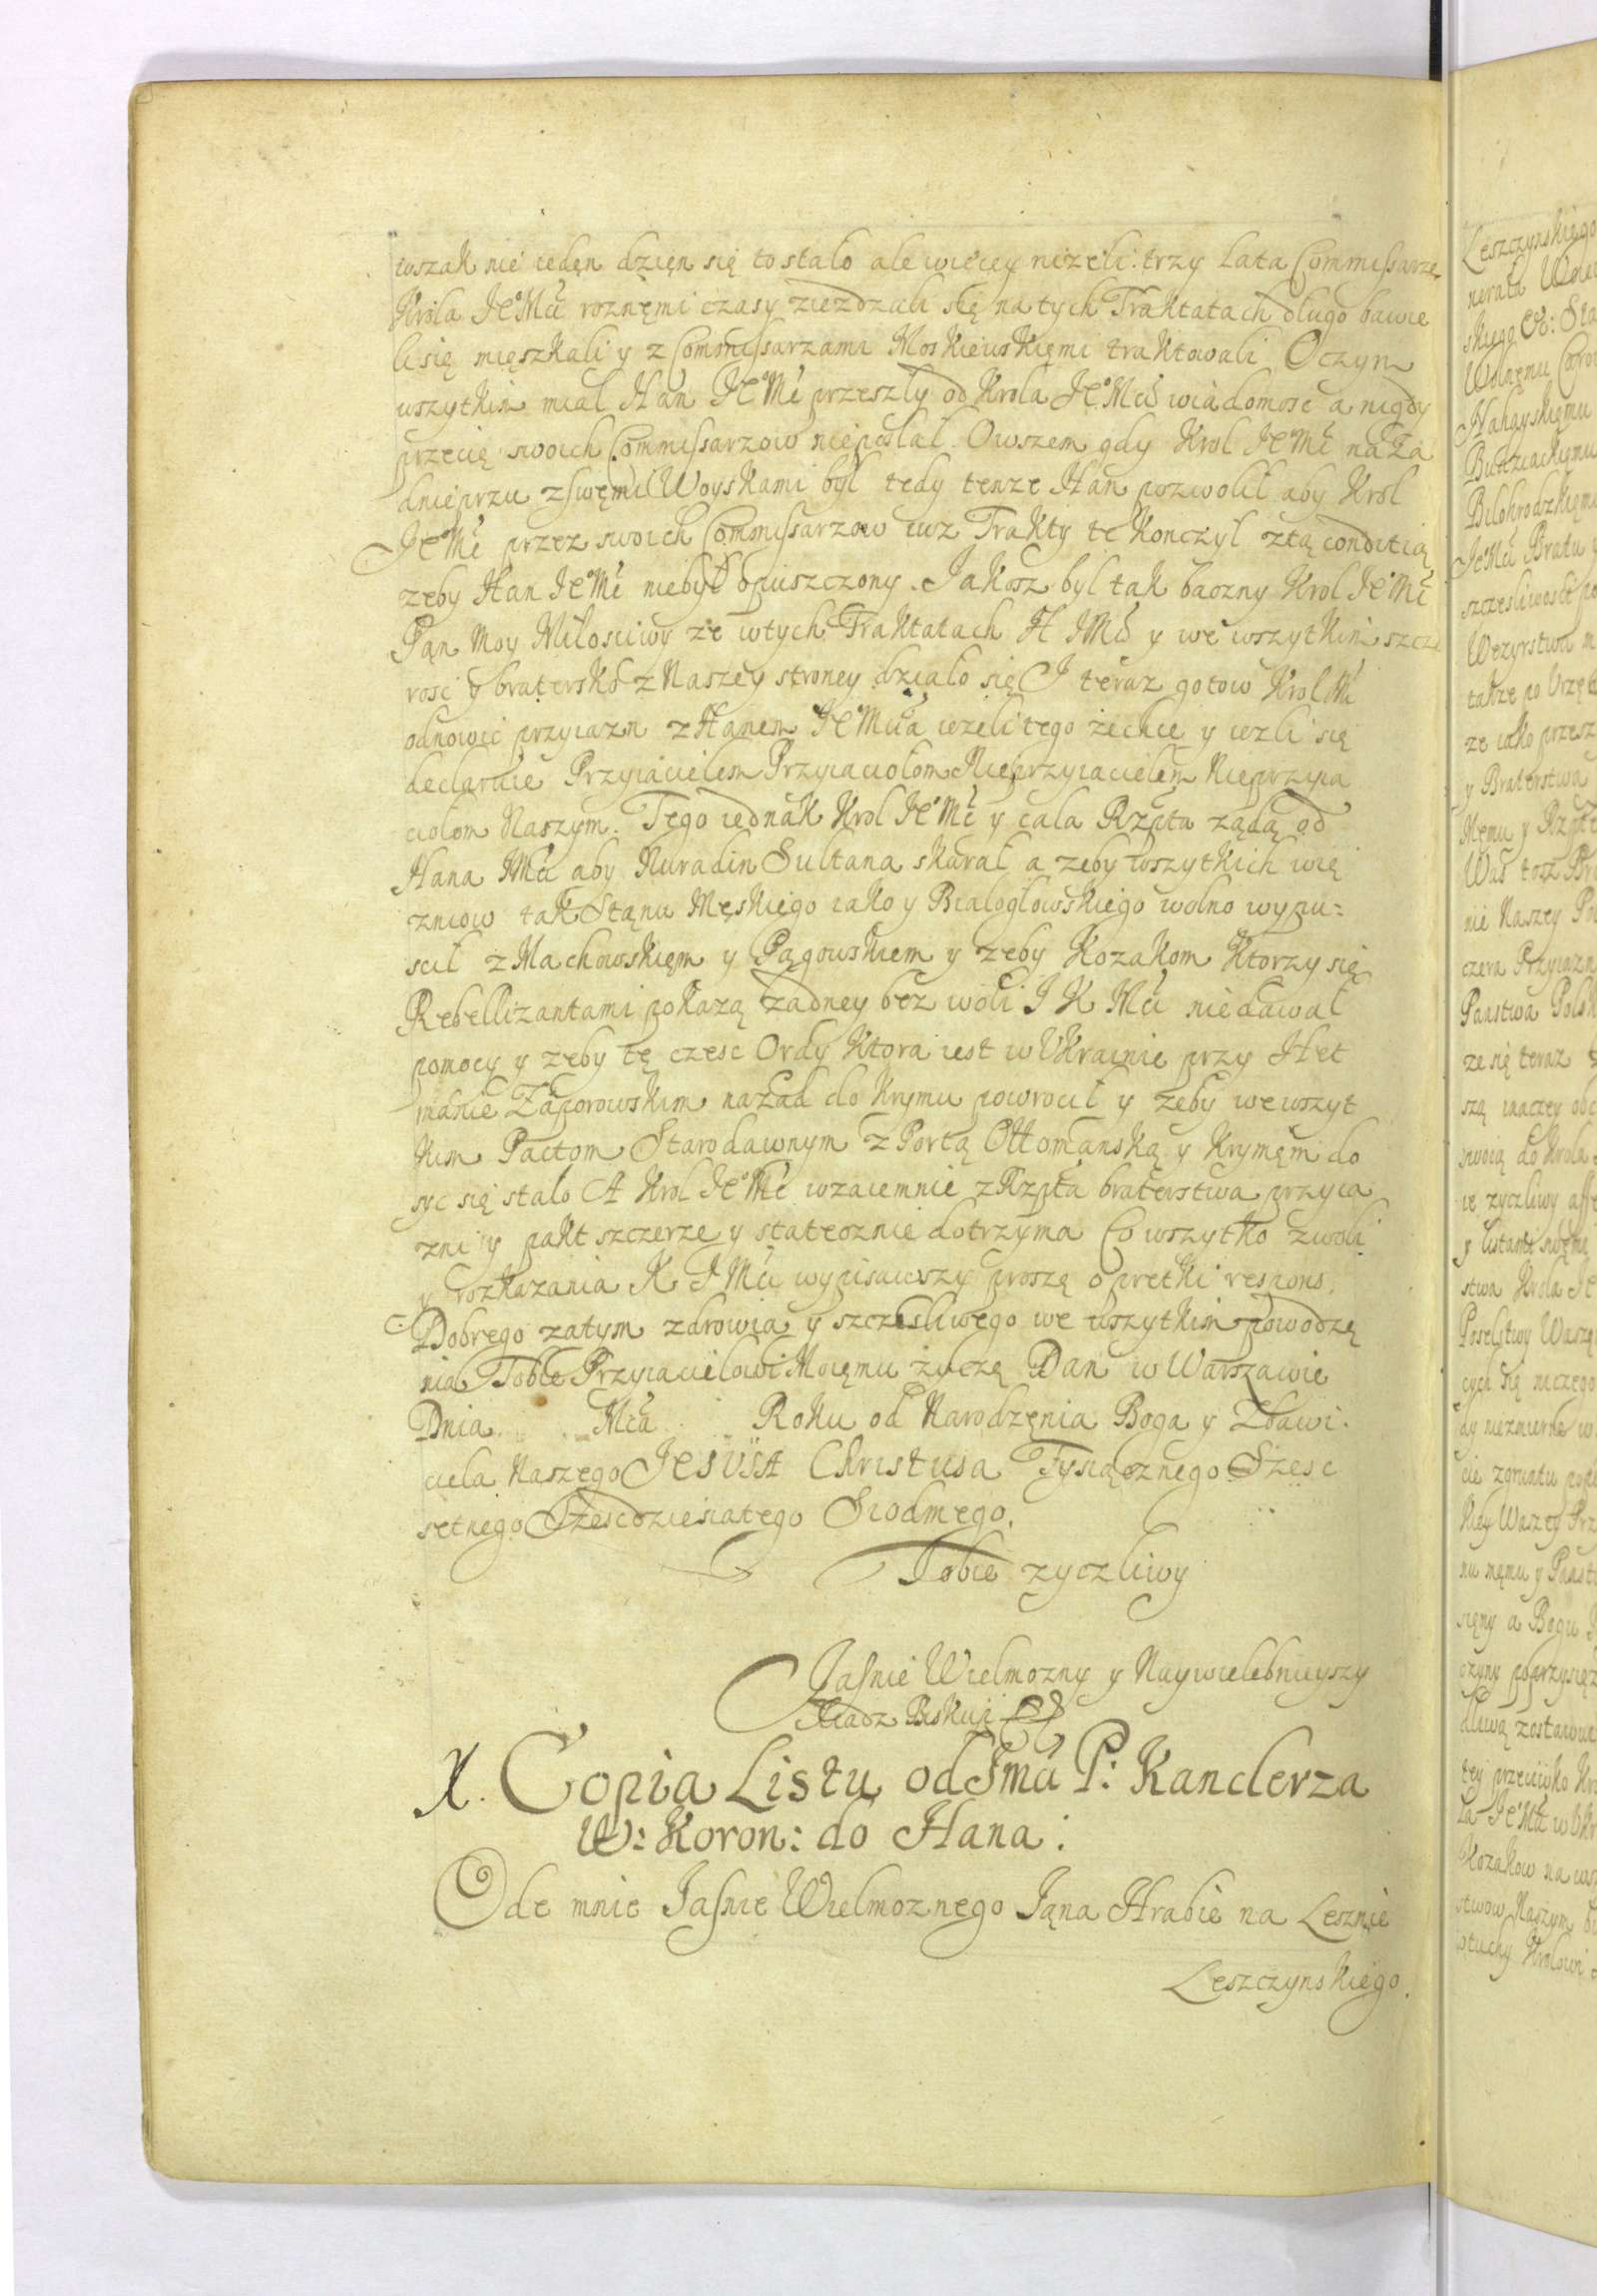 wszak nie iedęn dzięn się to stało ale wiecey nizeli trzy lata Commissarze
Krola JeMci roznęmi czasy ziezdzali się na tych Traktatach długo bawie
li się mięszkali y z Commissarzami Moskiewskięmi traktowali O czym
wszytkim miał Han JeMć przeszły od Krola JeMci wiadomosc a nigdy
przecię swoich Commissarzow nieposłał. Owszem gdy Krol JeMć na Za
dnieprzu z swęmi Woyskami był tedy tenze Han pozwolił aby Krol
JeMć przez swoich Commissarzow iuz Trakty te konczył z tą conditią
zeby Han JeMć niebył opuszczony. Jakosz był tak baczny Krol JeMć
Pąn Moy Miłosciwy ze w tych Traktatach H JMci y we wszytkim szcze
rosc y bratersko z Naszey stroney działo się J teraz gotow Krol Mć
odnowic przyiazn z Hanem JeMcią iezeli tego zechce y iezli się
declaruie Przyiacielem Przyiaciołom Nieprzyiacielem Nieprzyia
ciołom Naszym. Tego iednak Krol JeMć y cała Rzpta ządą od
Hana JMci aby Nuradin Sułtana skarał a zeby wszytkich wię
zniow tak Stąnu Męskiego iako y Białogłowskiego wolno wypu=
scił z Machowskięm y Pągowskiem y zeby Kozakom Ktorzy się
Rebellizantami pokazą zadney bez woli J K Mci niedawał
pomocy y zeby tę czesc Ordy Ktora iest w Ukrainie przy Het
manie Zaporowskim nazad do Krymu powrocił y zeby we wszyt
kim Pactom Starodawnym z Portą Ottomanską y Krymęm do
syc się stało A Krol JeMć wzaiemnie z Rzptą braterstwa przyia
zni y pakt szczerze y statecznie dotrzyma Co wszytko z woli
y rozkazania K JMci wypisawszy proszę o pretki respons.
Dobrego zatym zdrowia y szczesliwego we wszytkim powodzę
nia Tobie Przyiacielowi Moięmu zyczę Dan w Warszawie
Dnia Mca Roku od Narodzęnia Boga y Zbawi.
ciela Naszego JESUSA Christusa Tysiącznego Szesc
setnego Szescdziesiatego Siodmego.
Tobie zyczliwy
Jasnie Wielmozny y Naywielebnieyszy
Xiadz Biskup
X. Copia Listu od Jmci P: Kanclerza
W: Koron: do Hana:
Ode mnie Jasnie Wielmoznego Jąna Hrabie na Lesznie
Leszczynskiego.
Leszczynskiego
nerała
skiego
Wolnęmu
Nahayskięmu
Budziackięmu
Biłohrodzkięmu
JeMci Bratu
szczesliwosci po
Wezyrstwa
takze po Urzę
ze iako przesz
y Braterstwa
Męmu y Rzpte
Was tosz
nie Naszey
czera Przyiazn
Panstwa Polsk
ze się teraz
szą inaczey
swoią do Krola
ie zyczliwy aff
y listami swęmi
stwa Krola Je
Poselstwy Waszę
cych się niczego
dy niezmierne
cie zgruntu
Nie Waszey
nu męmu y Panst
a Bogu
czyny poprzysięz
zostawi
tey przeciwko
la JeMci w Ukr
Kozakow na
stwow Naszym
Krolowi